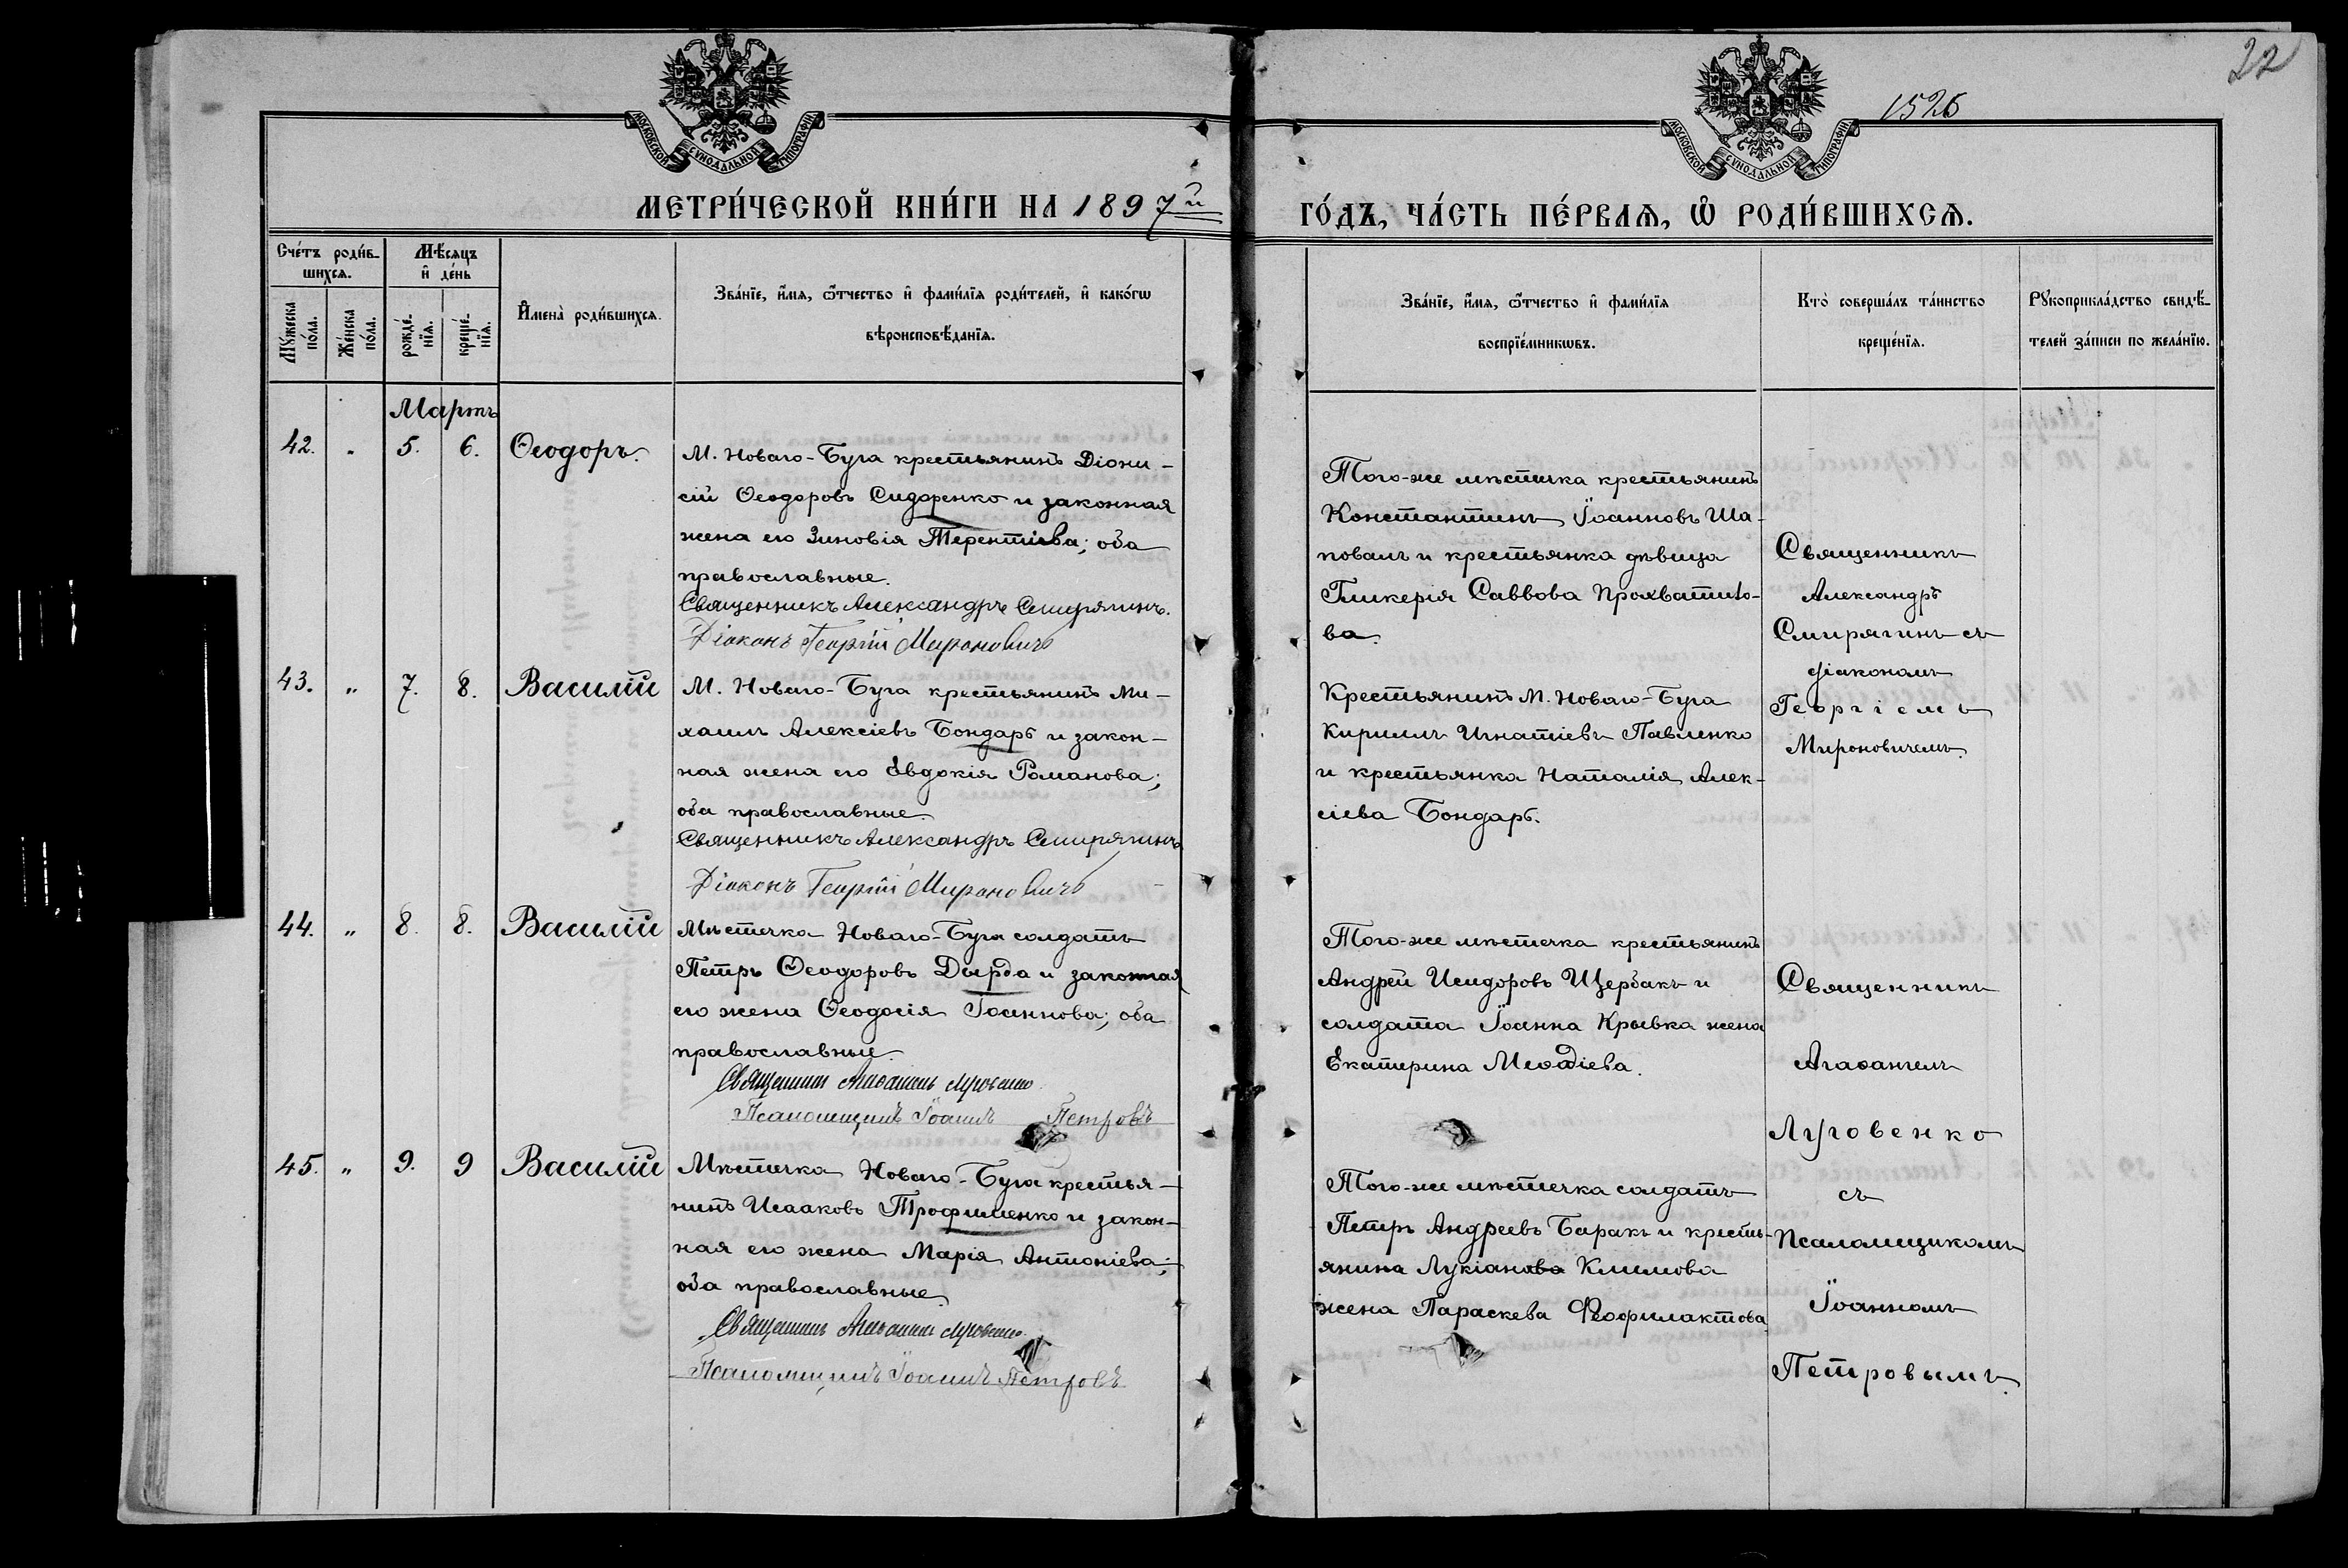 22
1526
МОСКОВСКОЙ СѴНОДАЛЬНОЙ ТИПОГРАФІИ
МОСКОВСКОЙ СѴНОДАЛЬНОЙ ТИПОГРАФІИ
МЕТРИ́ЧЕСКОЙ КНИ́ГИ НА 1897й
ГО́ДЪ, ЧА́СТЬ ПЕ́РВАѦ, Ѡ РОДИ́ВШИХСѦ.
Сче́тъ роди́в-
шихсѧ.
Мѣ́сѧцъ
и҆ де́нь
Мꙋ́жеска
по́ла.
Же́нска
по́ла.
рожде́-
нїѧ.
креще́-
нїѧ.
И҆мена̀ роди́вшихсѧ.
Зва́нїе, и҆́мѧ, ѻ҆́тчество и҆ фами́лїѧ роди́телей, и҆ како́гѡ
вѣроисповѣ́данїѧ.
Зва́нїе, и҆́мѧ, ѻ҆́тчество и҆ фами́лїѧ
воспрїе́мникѡвъ.
Кто̀ соверша́лъ та́инство
креще́нїѧ.
Рꙋкоприкла́дство свидѣ́-
телей за́писи по жела́нїю.
Мартъ
42. " 5. 6. Ѳеодоръ.
М. Новаго-Буга крестьянинъ Діони-
сій Ѳеодоровъ Сидоренко и законная
жена его Зиновія Терентіева; оба
православные.
Священникъ Александръ Смирягинъ.
Діаконъ Георгій Мироновичъ
Того-же мѣстечка крестьянинъ
Константинъ Іоанновъ Ша-
повалъ и крестьянка дѣвица
Гликерія Саввова Прохватило-
ва.
Священникъ
Александръ
Смирягинъ съ
діакономъ
Георгіемъ
Мироновичемъ.
43. " 7. 8. Василій
М. Новаго-Буга крестьянинъ Ми-
хаилъ Алексіевъ Бондарь и закон-
ная жена его Евдокія Романова;
оба православные.
Священникъ Александръ Смирягинъ
Діаконъ Георгій Мироновичъ
Крестьянинъ М. Новаго-Буга
Кириллъ Игнатіевъ Павленко
и крестьянка Наталія Алек-
сіева Бондарь.
44. " 8. 8. Василій
Мѣстечка Новаго-Буга солдатъ
Петръ Ѳеодоровъ Дырда и законная
его жена Ѳеодосія Іоаннова; оба
православные.
Священникъ Агаѳангелъ Луговенко
Псаломщикъ Іоаннъ Петровъ
Того-же мѣстечка крестьянинъ
Андрей Исидоровъ Щербакъ и
солдата Іоанна Крывка жена
Екатерина Меѳодіева.
Священникъ
Агаѳангелъ
Луговенко
съ
Псаломщикомъ
Іоанномъ
Петровымъ.
45. " 9. 9 Василій
Мѣстечка Новаго-Буга крестья-
нинъ Исааковъ Трофименко и закон-
ная его жена Марія Антоніева;
оба православные.
Священникъ Агаѳангелъ Луговенко.
Псаломщикъ Іоаннъ Петровъ
Того-же мѣстечка солдатъ
Петръ Андреевъ Баракъ и кресть-
янина Лукіанова Климова
жена Параскева Феофилактова